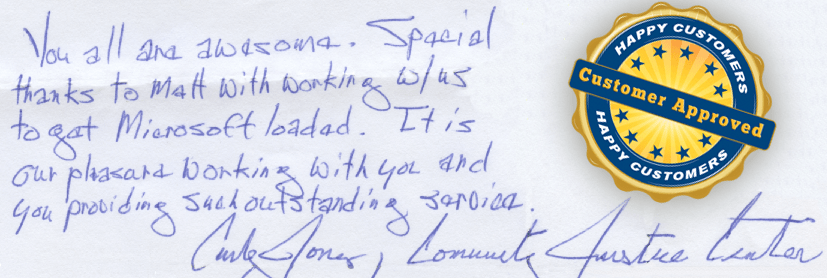 You all are awesome. Special
thanks to Matt with working w/us
to get Microsoft loaded. It is
our pleasure working with you and
you providing such outstanding service.
Jones, Community Justice Center
HAPPY CUSTOMERS
Customer Approved
HAPPY CUSTOMERS